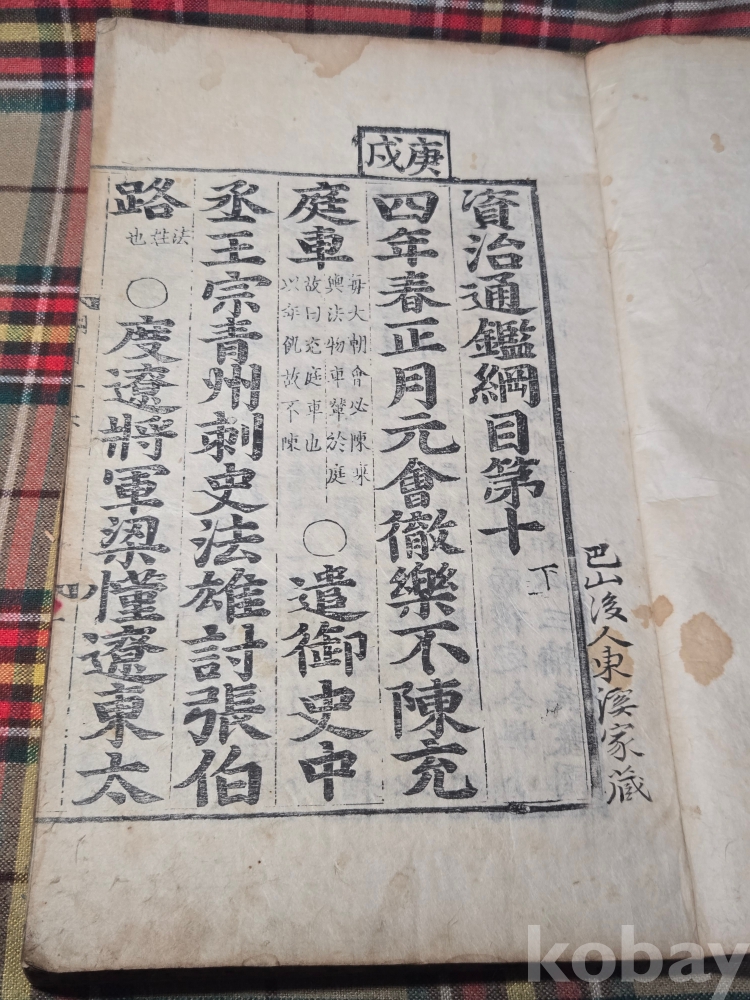 巴山後人東溪家藏
庚戌
資治通鑑綱目第十下
四年春正月元會徹樂不陳充
庭車
每大朝會必陳乘
輿法物車輦於庭
故曰充庭車也
以年饑故不陳
○遣御史中
丞王宗青州刺史法雄討張伯
路
法姓也
○度遼將軍梁慬遼東太
kobay